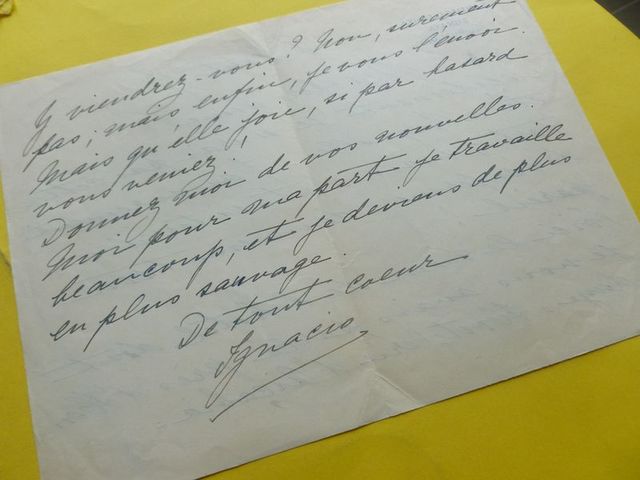 Y viendrez-vous? Non, surement
pas; mais enfin, je vous l'envoi.
Mais qu'elle joie, si par hasard
vous veniez!
Donnez moi de vos nouvelles.
Moi pour ma part je travaille
beaucoup, et je deviens de plus
en plus sauvage.
De tout coeur
Ignacio